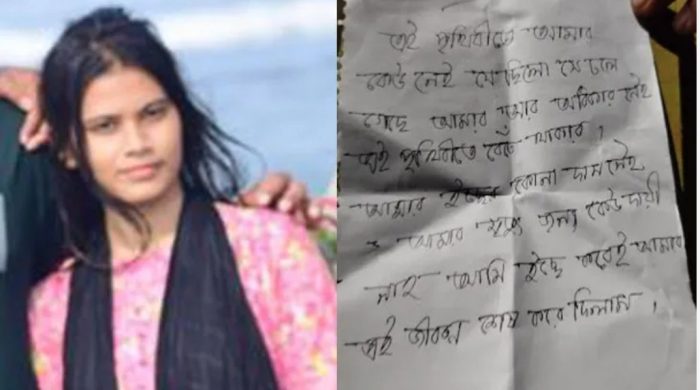 এই পৃথিবীতে আমার
কেউ নেই যে ছিলো সে চলে
গেছে আমার আর অধিকার নেই
এই পৃথিবীতে বেঁচে থাকার।
আমার ইচ্ছের কোনো দাম নেই
আমার মৃত্যুর জন্য কেউ দায়ী
নাহ আমি ইচ্ছে করেই আমার
এই জীবন শেষ করে দিলাম।